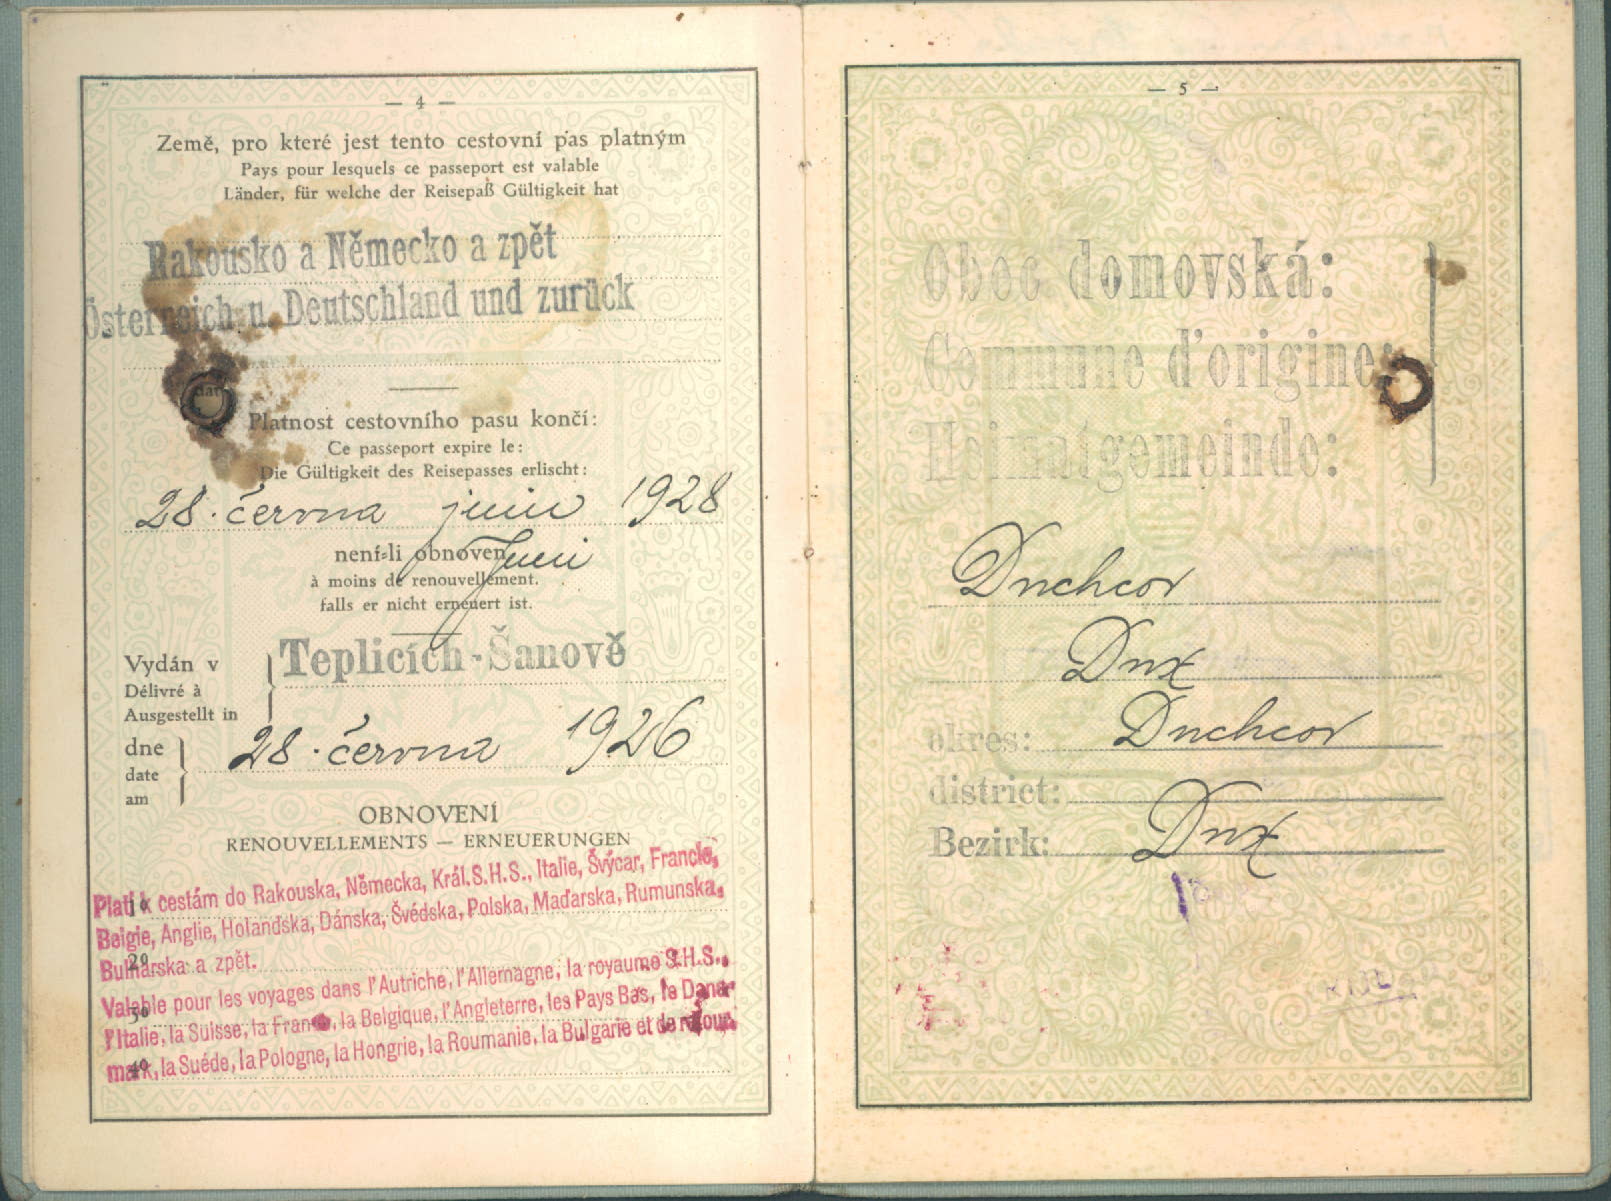 — 4 —
Země, pro které jest tento cestovní pas platným
Pays pour lesquels ce passeport est valable
Länder, für welche der Reisepaß Gültigkeit hat
Rakousko a Německo a zpět
Österreich u. Deutschland und zurück
Platnost cestovního pasu končí:
Ce passeport expire le:
Die Gültigkeit des Reisepasses erlischt:
28. června juin 1928
není-li obnoven Juni
à moins de renouvellement.
falls er nicht erneuert ist.
Vydán v
Délivré à
Ausgestellt in
Teplicích-Šanově
dne
date
am
28. června 1926
OBNOVENÍ
RENOUVELLEMENTS — ERNEUERUNGEN
Platí k cestám do Rakouska, Německa, Král. S.H.S., Italie, Švýcar, Francie,
Belgie, Anglie, Holandska, Dánska, Švédska, Polska, Maďarska, Rumunska,
Bulharska a zpět.
Valable pour les voyages dans l'Autriche, l'Allemagne, la royaume S.H.S.,
l'Italie, la Suisse, la France, la Belgique, l'Angleterre, les Pays Bas, le Dane-
mark, la Suéde, la Pologne, la Hongrie, la Roumanie, la Bulgarie et de retour.
— 5 —
Obec domovská:
Commune d'origine:
Heimatgemeinde:
Duchcov
Dux
okres: Duchcov
district:
Bezirk: Dux